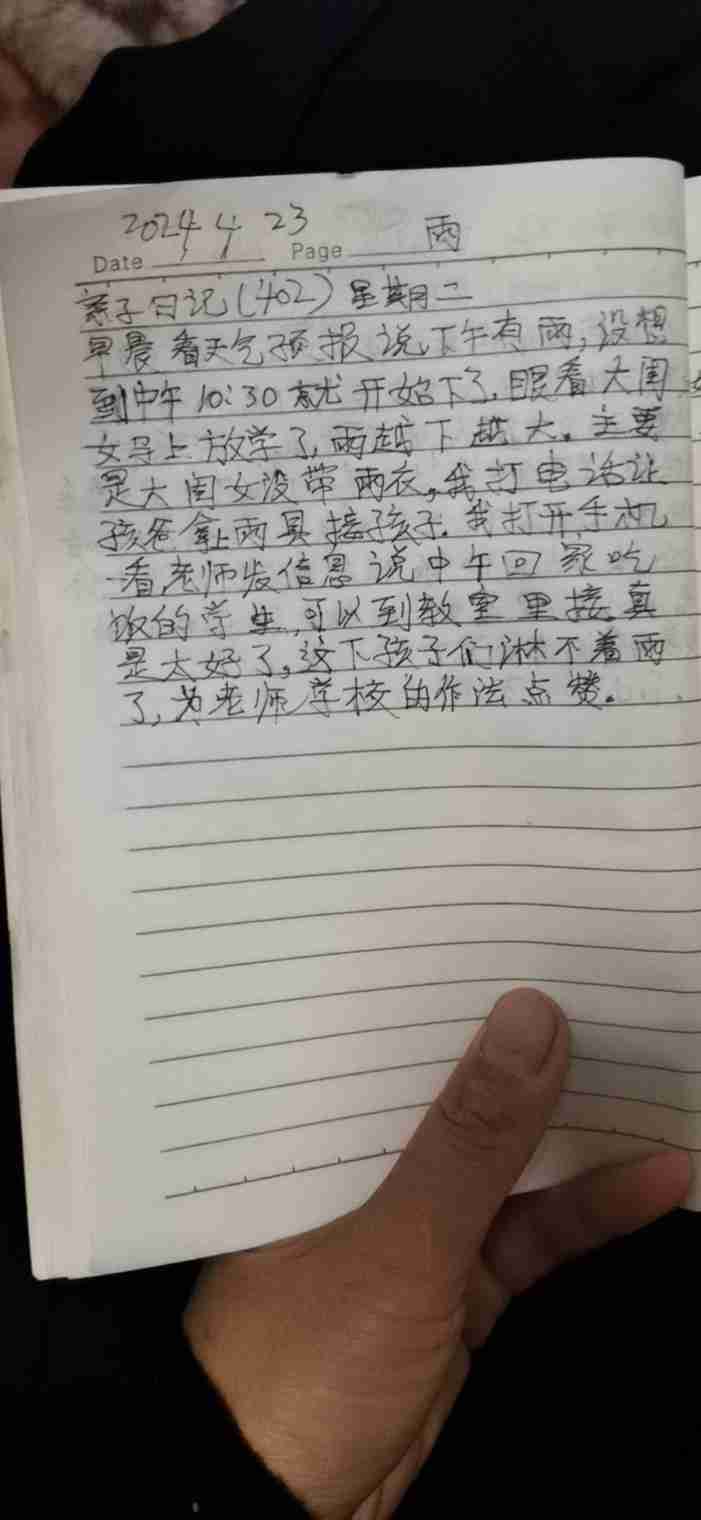 2024 4 23 雨
Date Page
亲子日记(402) 星期二
早晨看天气预报说下午有雨,没想
到中午10:30就开始下了.眼看大闺
女马上放学了,雨越下越大。主要
是大闺女没带雨衣,我打电话让
孩爸拿上雨具接孩子.我打开手机
一看老师发信息说中午回家吃
饭的学生,可以到教室里接真
是太好了,这下孩子们淋不着雨
了,为老师学校的作法点赞。